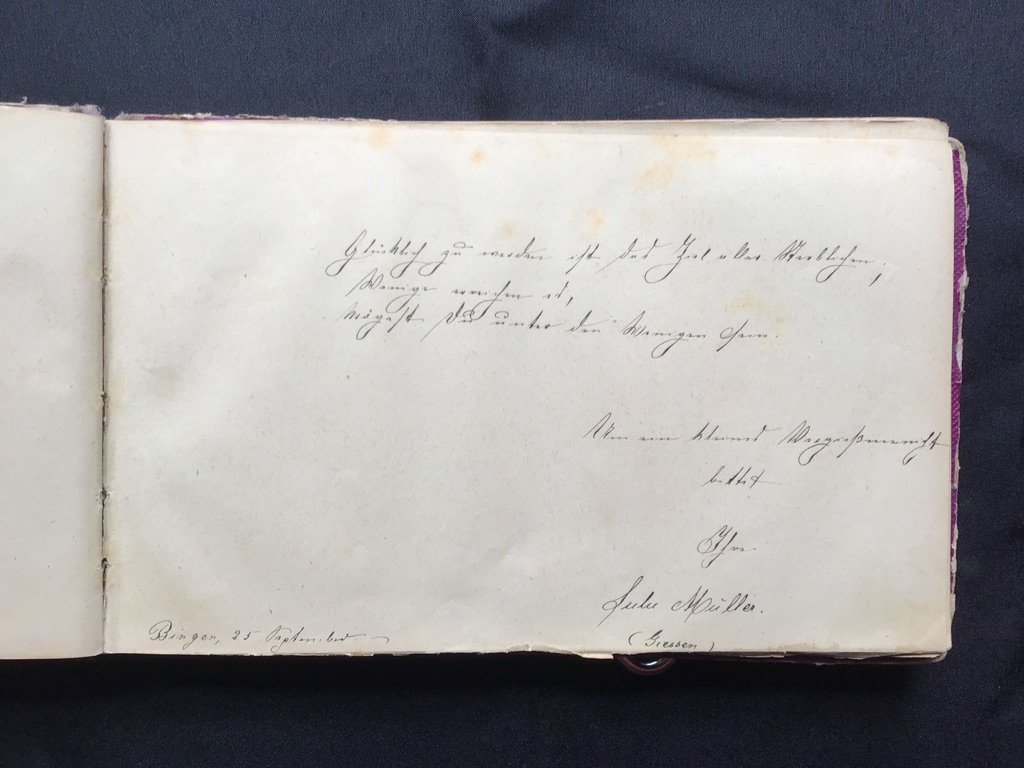 Glücklich zu werden ist das Ziel aller Sterblichen,
Wenige erreichen es,
Mögest Du unter den Wenigen sein.
Um ein kleines Vergißmeinnicht
bittet
Ihre
Lulu Müller.
(Giessen)
Bingen, 25 September